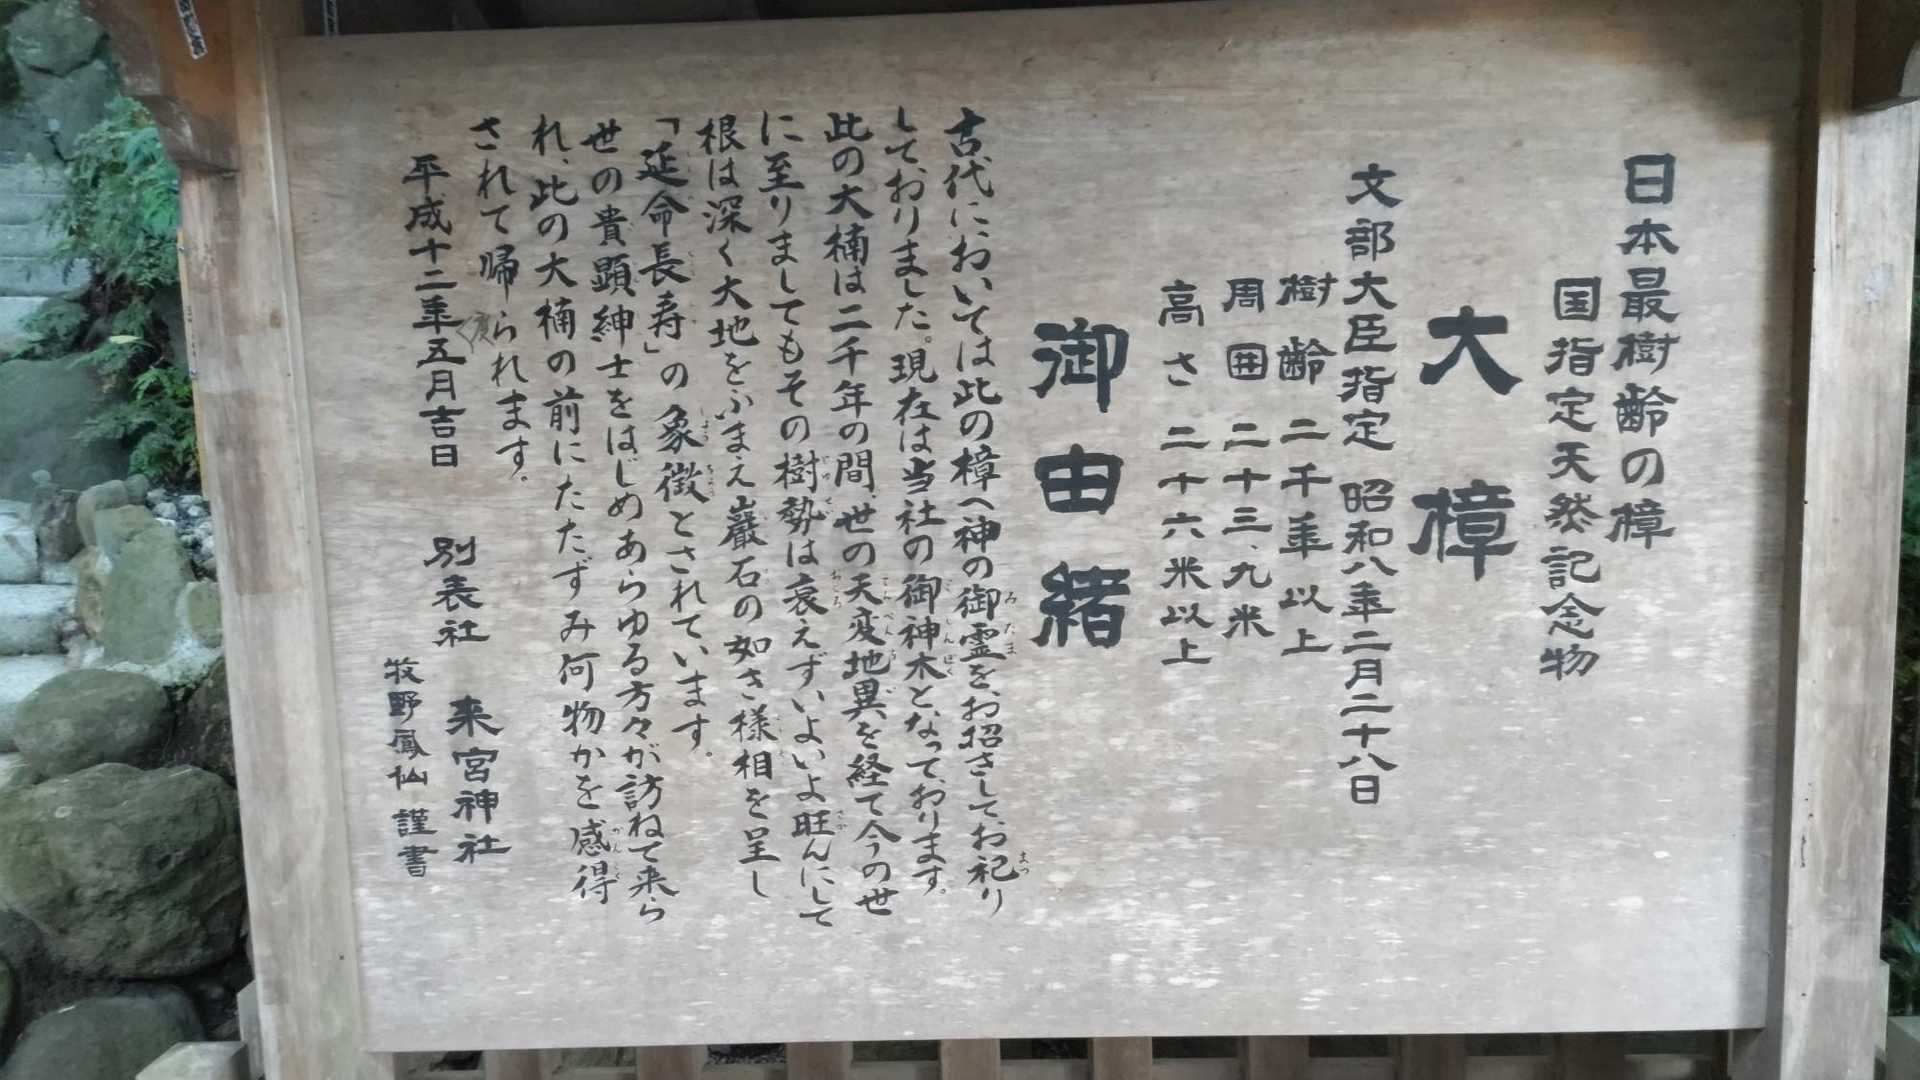 日本最樹齢の樟
国指定天然記念物
大樟
文部大臣指定 昭和八年二月二十八日
樹齢 二千年以上
周囲 二十三、九米
高さ 二十六米以上
御由緒
古代においては此の樟へ神の御霊を、お招きして、お祀り
しておりました。現在は当社の御神木となって、おります。
此の大楠は二千年の間、世の天変地異を経て今の世
に至りましてもその樹勢は衰えずいよいよ旺んにして
根は深く大地をふまえ巖石の如き様相を呈し
「延命長寿」の象徴とされています。
世の貴顕紳士をはじめあらゆる方々が訪ねて来ら
れ、此の大楠の前にたたずみ何物かを感得
されて帰られます。
平成十二年五月吉日
別表社 来宮神社
牧野鳳仙 謹書